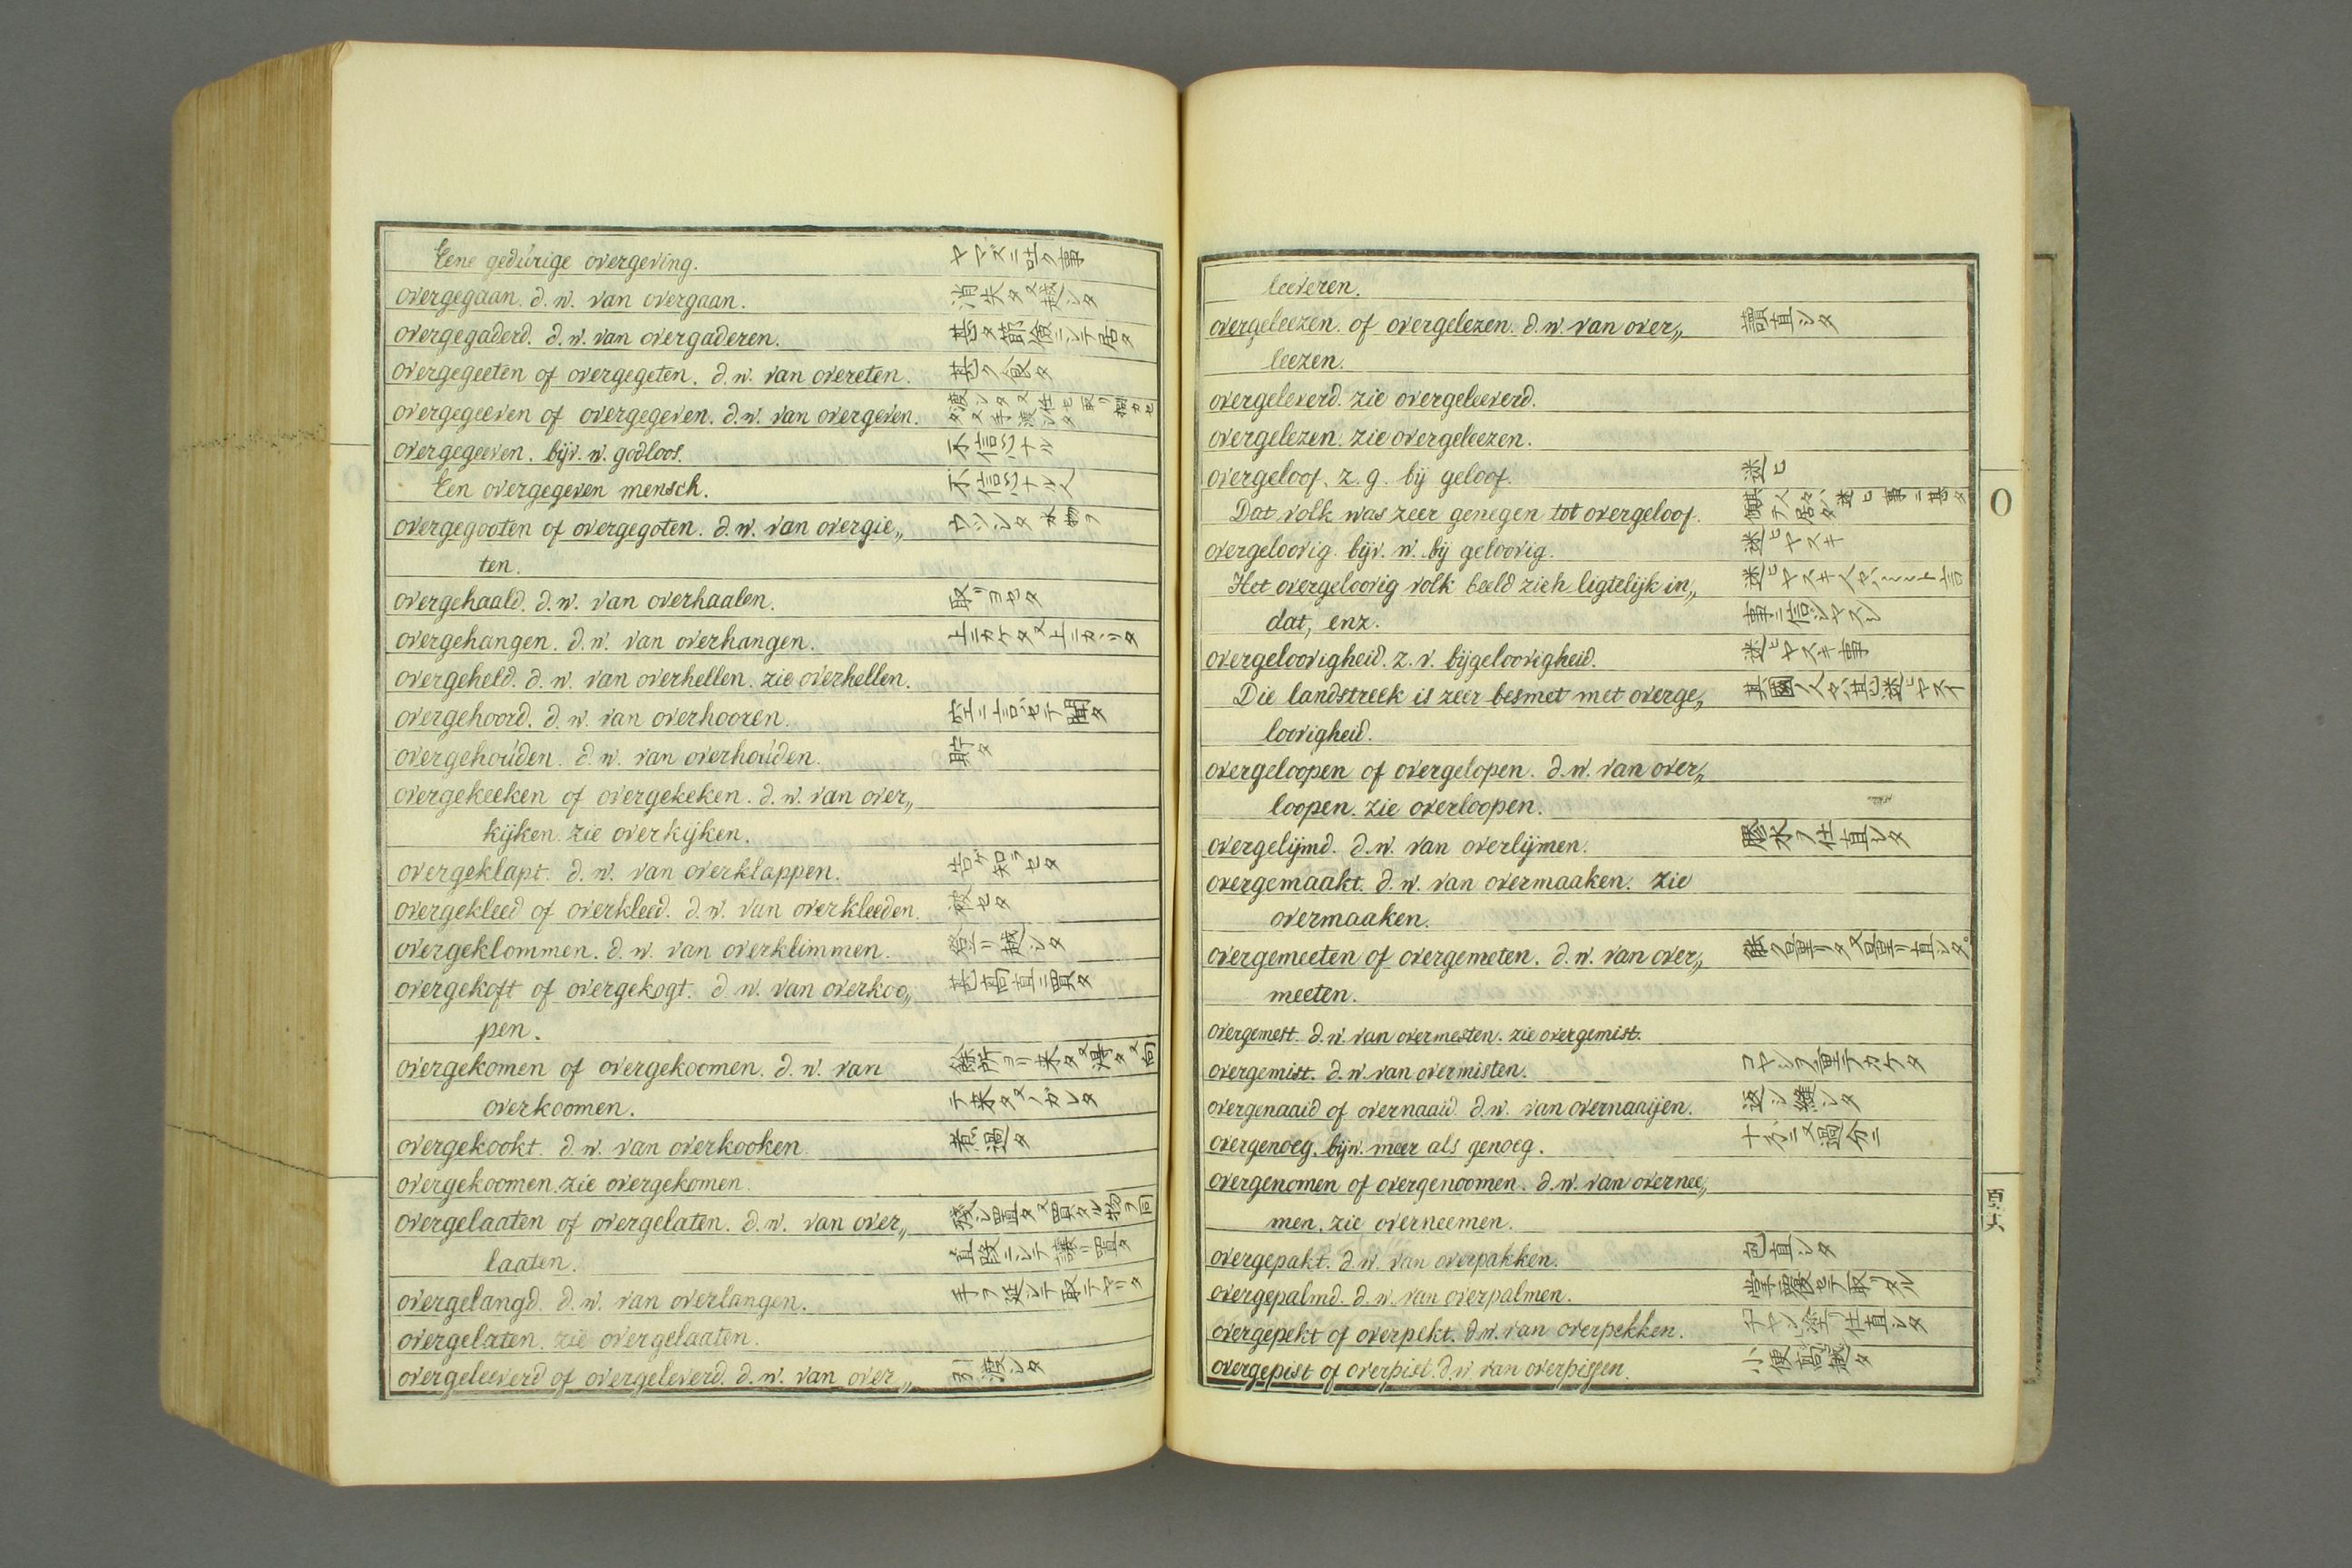 Eene gedúrige overgeving. ヤマズニ吐ク事
overgegaan. d. w. van overgaan. 消失タ又越シタ
overgegaderd. d. w. van overgaderen. 甚タ節倹ニシテ居タ
overgegeeten of overgegeten. d. w. van overeten. 甚ク食タ
overgegeeven of overgegeven. d. w. van overgeven.
overgegeeven. bijv. w. godloos. 不信心ナル
Een overgegeven mensch. 不信心ナル人
overgegooten of overgegoten. d. w. van overgie„ ウツシタ 水物ヲ
ten.
overgehaald. d. w. van overhaalen. 取リヨセタ
overgehangen. d. w. van overhangen. 上ニカケタ又上ニカヽツタ
overgeheld. d. w. van overhellen. zie overhellen.
overgehoord. d. w. van overhooren. 空ニ言ハセテ聞タ
overgehoúden. d. w. van overhoúden. 貯タ
overgekeeken of overgekeken. d. w. van over„
kijken. zie overkijken.
overgeklapt. d. w. van overklappen. 告ケ知ラセタ
overgekleed of overkleed. d. w. van overkleeden. 被セタ
overgeklommen. d. w. van overklimmen. 登リ越シタ
overgekoft of overgekogt. d. w. van overkoo„ 甚高直ニ買タ
pen.
overgekomen of overgekoomen. d. w. van 餘所ヨリ来タ又得タ又向
overkoomen. テ来タ又ノガレタ
overgekookt. d. w. van overkooken 煮過タ
overgekoomen. zie overgekomen.
overgelaaten of overgelaten. d. w. van over„ 残シ置タ又買タル物ヲ同
laaten. 直段ニシテ譲リ置タ
overgelangd. d. w. van overlangen. 手ヲ延シテ取テヤリタ
overgelaten. zie overgelaaten.
overgeleeverd of overgeleverd. d. w. van over„ 引渡シタ
leeveren.
overgeleezen. of overgelezen. d. w. van over„ 讀直シタ
leezen.
overgeleverd. zie overgeleeverd.
overgelezen. zie overgeleezen.
overgeloof. z. g. bij geloof. 迷ヒ
Dat volk was zeer genegen tot overgeloof.
overgeloovig. bijv. w. bij geloovig. 迷ヒヤスキ
Het overgeloovig volk beeld zich ligtelijk in„
dat, enz. 事ニ信シヤスシ
overgeloovigheid. z. v. bijgeloovigheid. 迷ヒヤスキ事
Die landstreek is zeer besmet met overge„ 其國ノ人々ハ甚タ迷ヒヤスイ
loovigheid.
overgeloopen of overgelopen. d. w. van over„
loopen. zie overloopen.
overgelijmd. d. w. van overlijmen. 膠水ヲ仕直シタ
overgemaakt. d. w. van overmaaken. zie
overmaaken.
overgemeeten of overgemeten. d. w. van over„ 餘ク量リタ又量リ直シタ。
meeten.
overgemest. d. w. van overmesten. zie overgemist.
overgemist. d. w. van overmisten. コヤシヲ重テカケタ
overgenaaid of overnaaid. d. w. van overnaaijen. 返シ縫シタ
overgenoeg. bijw. meer als genoeg. 十分ニ又過分ニ
overgenomen of overgenoomen. d. w. van overnee„
men. zie overneemen.
overgepakt. d. w. van overpakken. 包直シタ
overgepalmd. d. w. van overpalmen.
overgepekt of overpekt. d. w. van overpekken. チヤン塗リ仕直シタ
overgepist of overpist. d. w. van overpissen. 小便高越タ
O